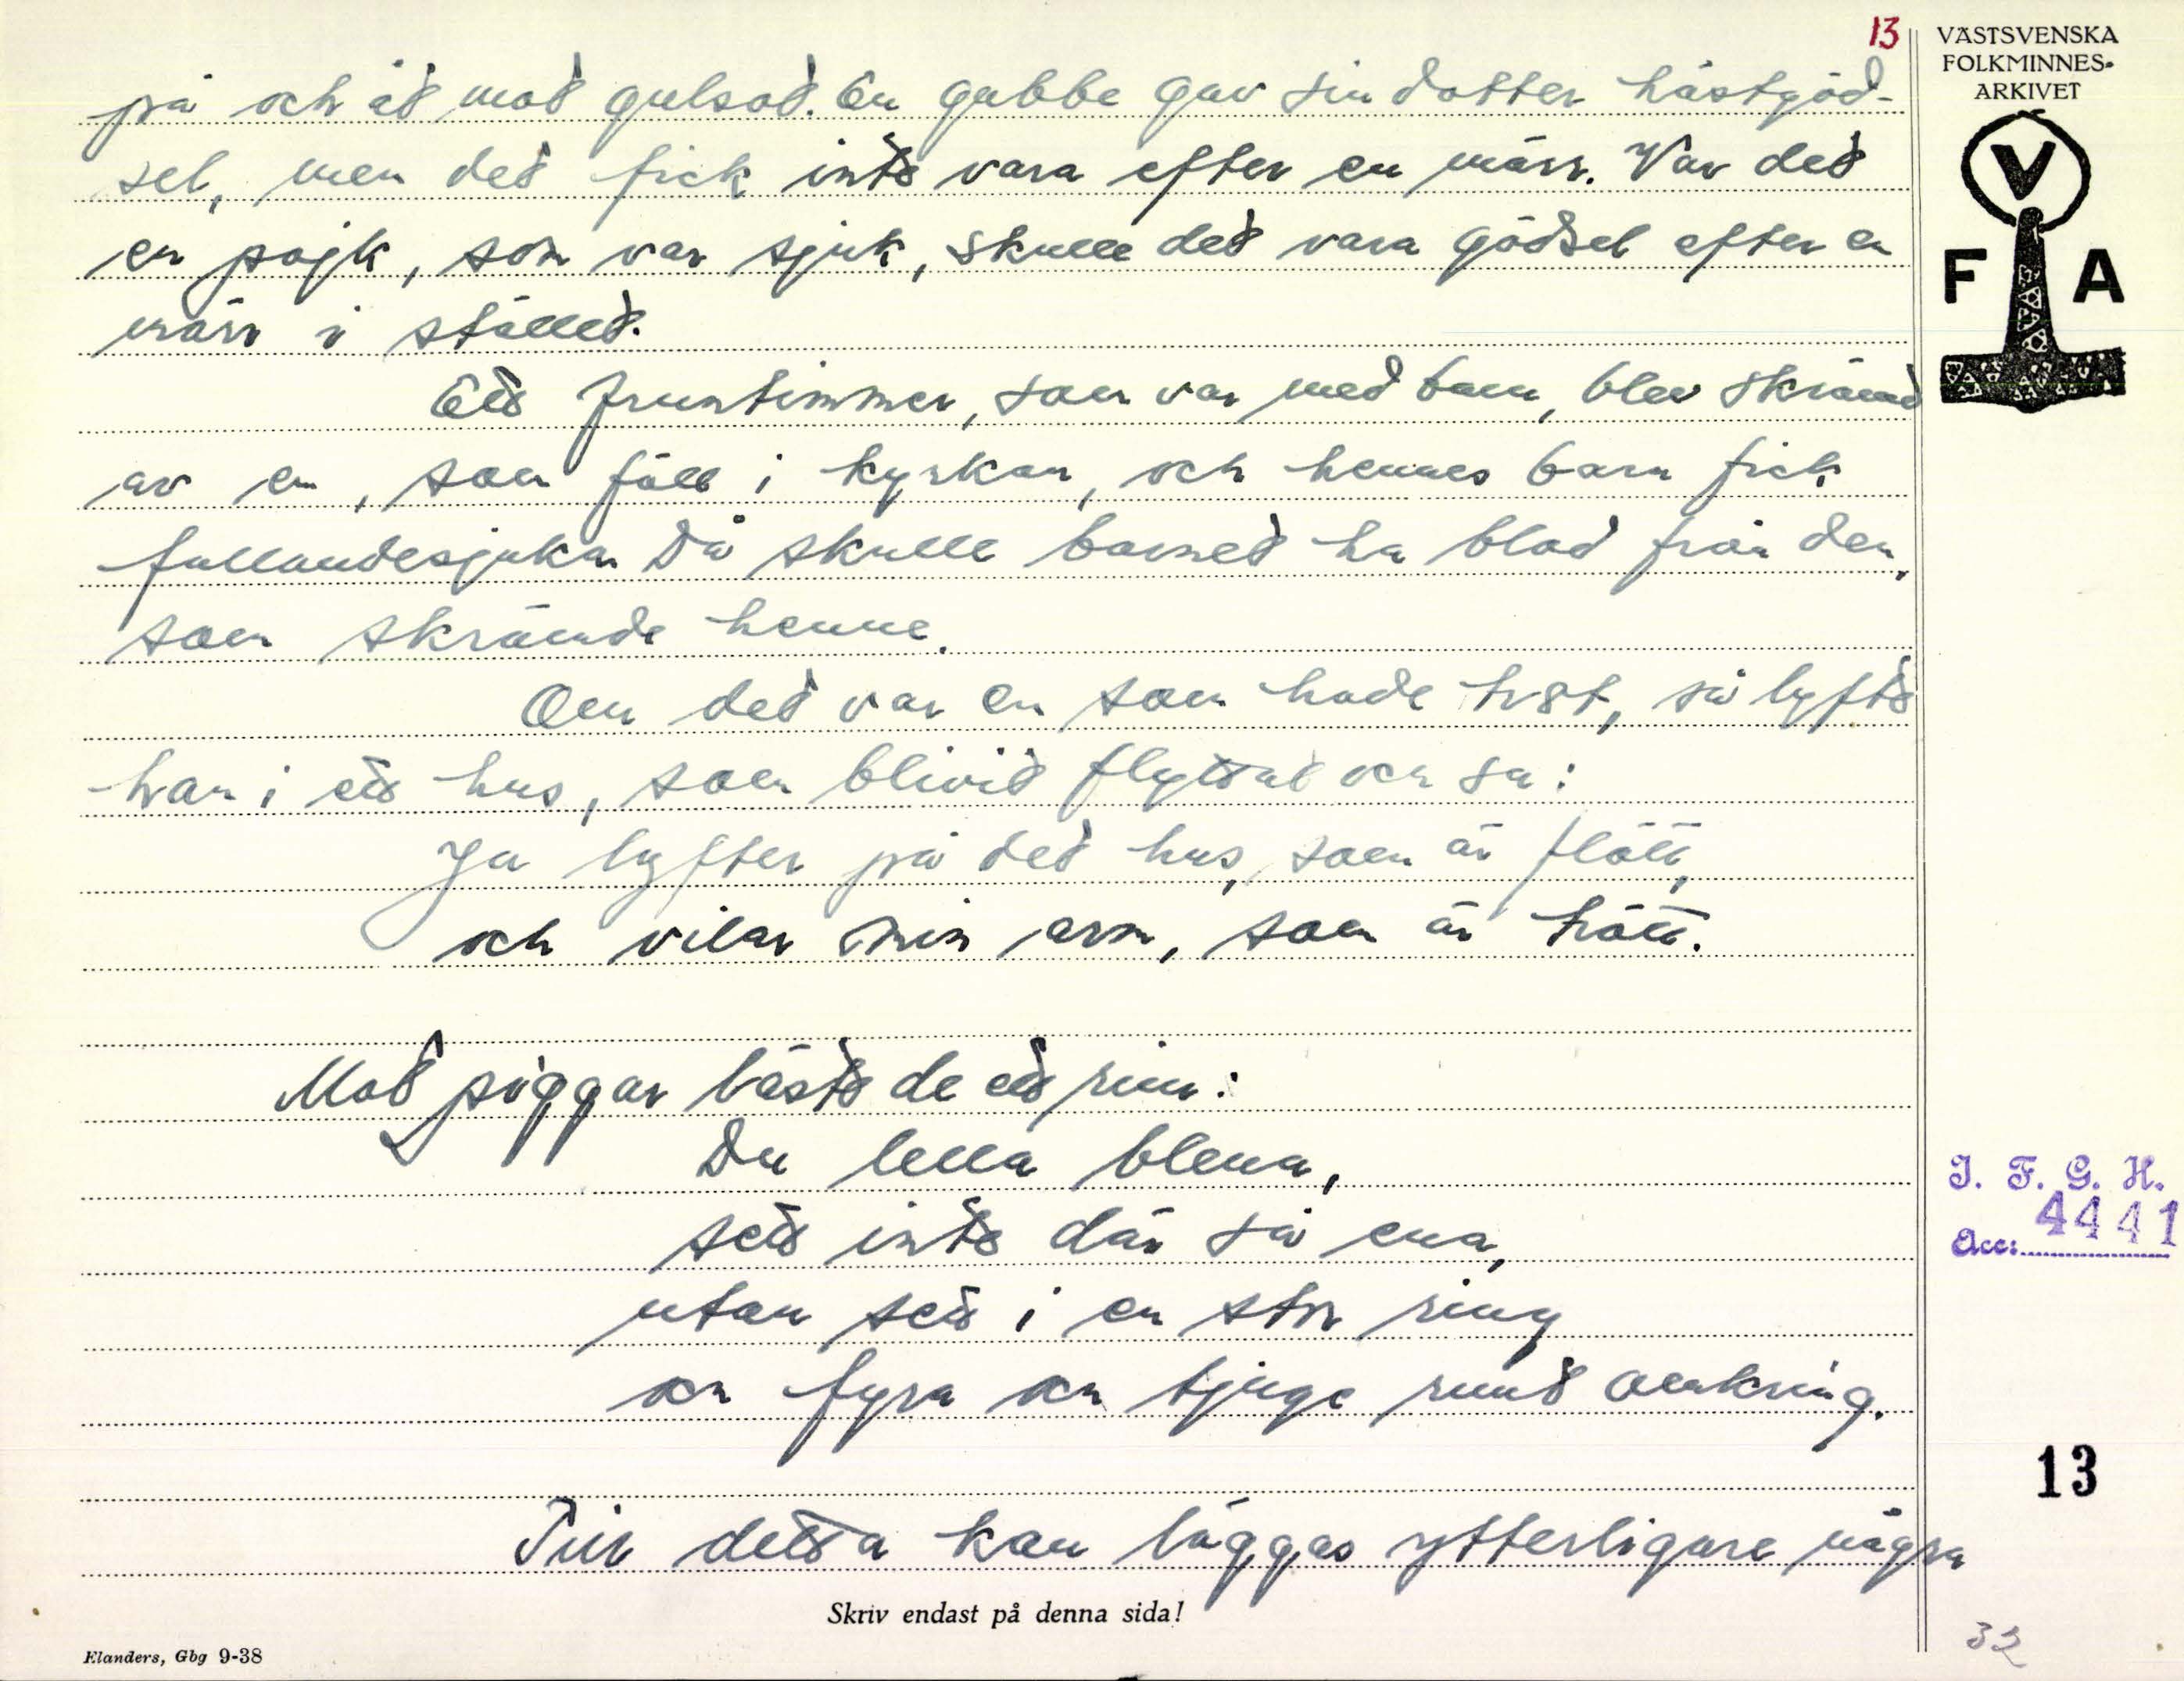 13
VÄSTSVENSKA
FOLKMINNES-
ARKIVET
V
F A
på och åt mot gulsot. En gubbe gav sin dotter hästgöd-
sel, men det fick inte vara efter en märr. Var det
en pojk, som var sjuk, skulle det vara gödsel efter en
märr i stället.
Ett fruntimmer, som var med barn, blev skrämd
av en, som föll i kyrkan, och hennes barn fick
fallandesjukan. Då skulle barnet ha blod från den,
som skrämde henne.
Om det var en som hade tröt, så lyfte
han i ett hus, som blivit flyttat och sa:
Ja lyfter på det hus, som är flött,
och vilar min arm, som är trött.
Mot piggar läste de ett rim:
Du lella blena,
sett inte där så ena,
utan sett i en stor ring
och fyra och tjuge runt omkring.
Till detta kan läggas ytterligare några
I. F. G. H.
Acc: 4441
13
Skriv endast på denna sida!
Elanders, Gbg 9-38
32